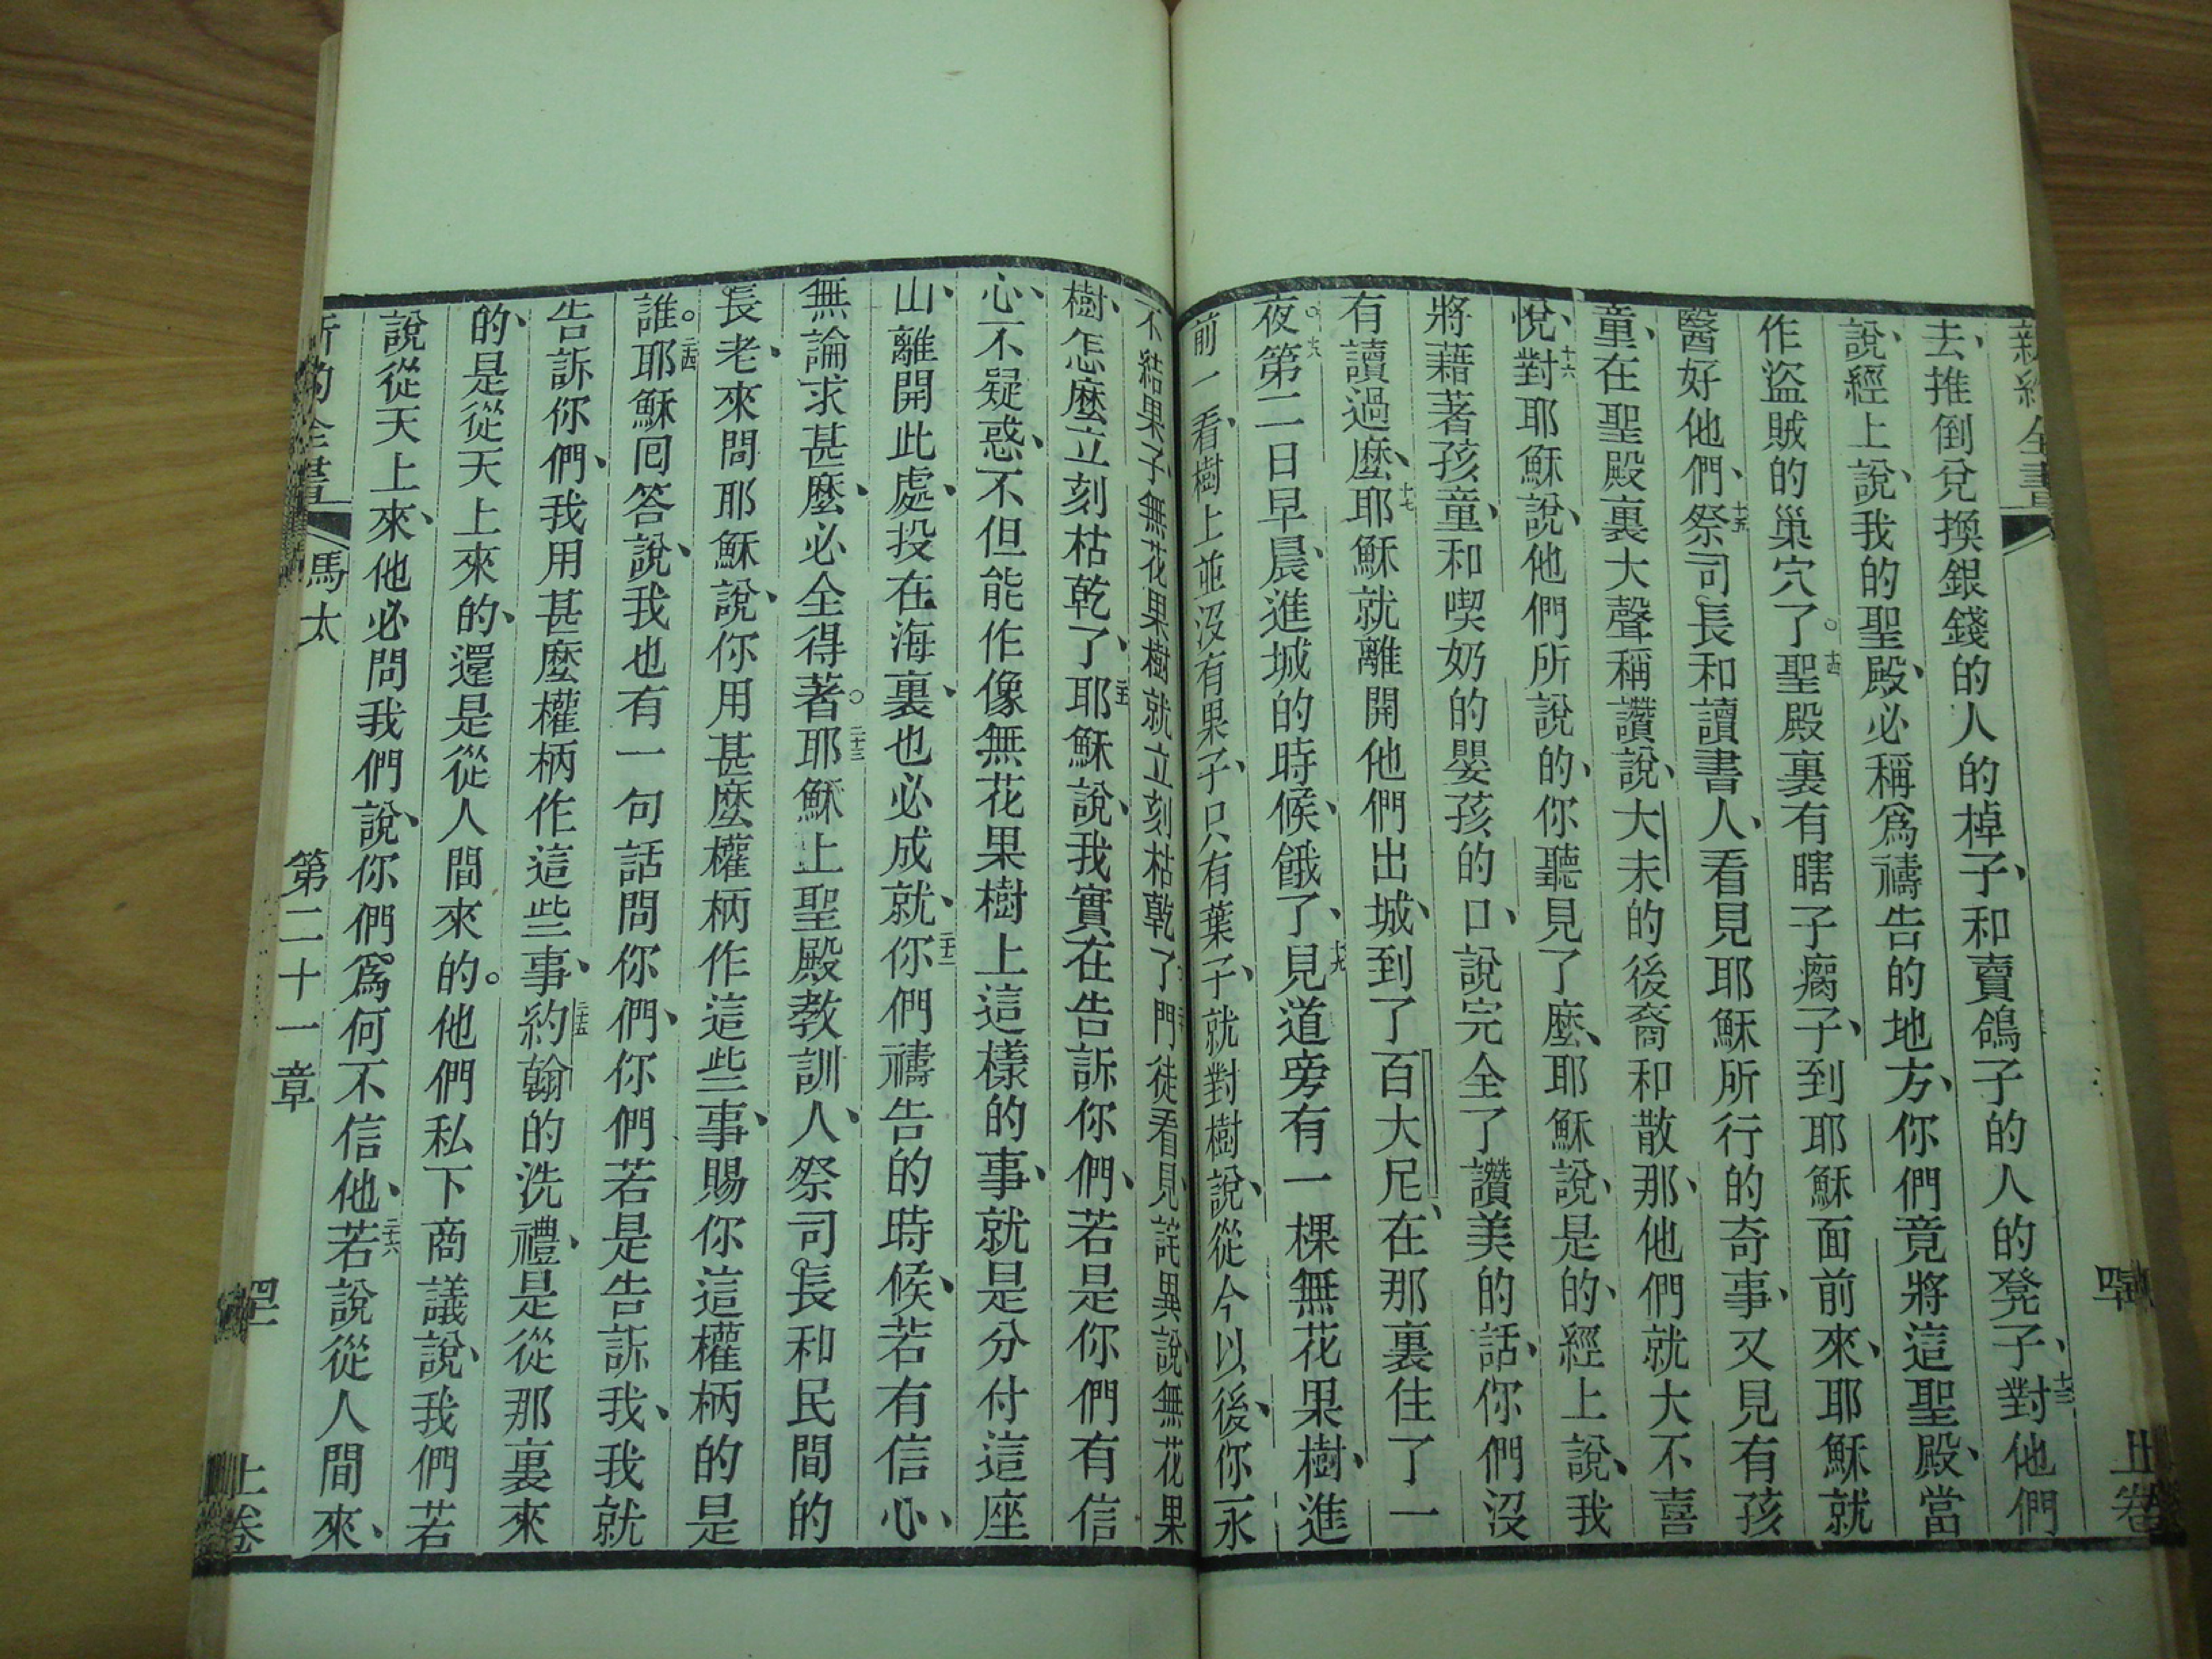 新約全書
上卷
去、推倒兌換銀錢的人的棹子、和賣鴿子的人的凳子、十三對他們
說、經上說、我的聖殿、必稱爲禱告的地方、你們竟將這聖殿、當
作盜賊的巢穴了。十四聖殿裏有瞎子瘸子、到耶穌面前來、耶穌就
醫好他們、十五祭司長和讀書人、看見耶穌所行的奇事、又見有孩
童、在聖殿裏大聲稱讚說、大未的後裔和散那、他們就大不喜
悅、十六對耶穌說、他們所說的、你聽見了麼、耶穌說、是的、經上說、我
將藉著孩童、和喫奶的嬰孩的口、說完全了讚美的話、你們沒
有讀過麼、十七耶穌就離開他們出城、到了百大尼、在那裏住了一
夜。十八第二日早晨、進城的時候、餓了、十九見道旁有一棵無花果樹、進
前一看、樹上並沒有果子、只有葉子、就對樹說、從今以後、你永
不結果子、無花果樹就立刻枯乾了、二十門徒看見、詫異說、無花果
樹、怎麼立刻枯乾了、二十一耶穌說、我實在告訴你們、若是你們有信
心、不疑惑、不但能作像無花果樹上這樣的事、就是分付這座
山、離開此處、投在海裏、也必成就、二十二你們禱告的時候、若有信心、
無論求甚麼、必全得著。二十三耶穌上聖殿教訓人、祭司長和民間的
長老、來問耶穌說、你用甚麼權柄作這些事、賜你這權柄的是
誰。二十四耶穌回答說、我也有一句話問你們、你們若是告訴我、我就
告訴你們、我用甚麼權柄作這些事、二十五約翰的洗禮、是從那裏來
的、是從天上來的、還是從人間來的。他們私下商議說、我們若
說從天上來、他必問我們說、你們爲何不信他、二十六若說從人間來、
新約全書 馬太 第二十一章 上卷